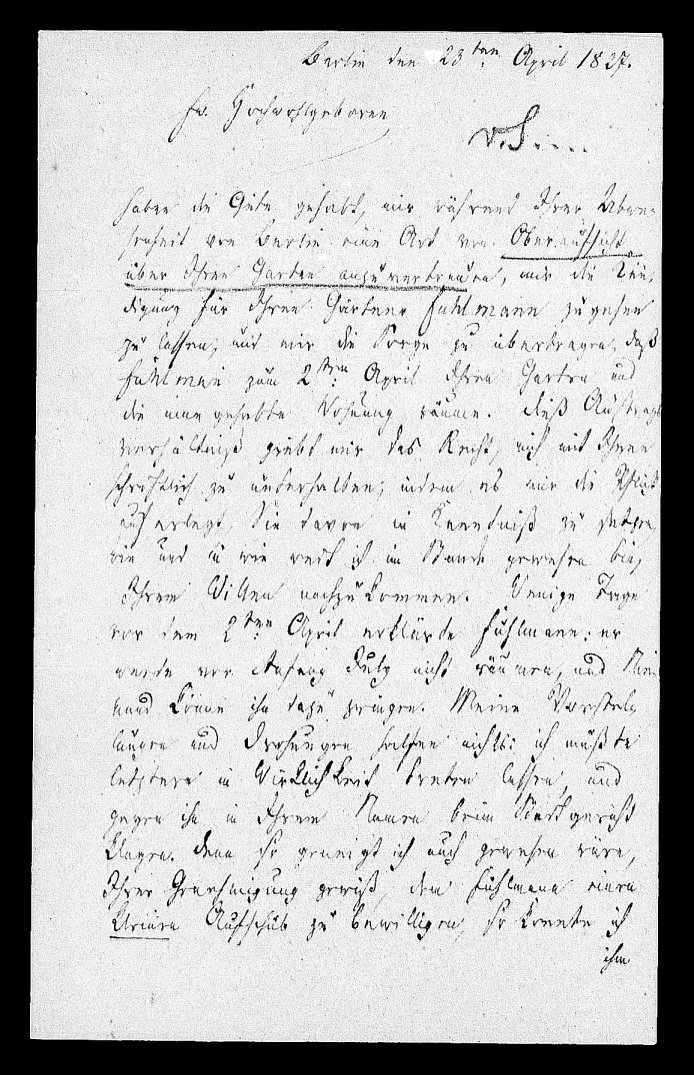 Berlin den 23ten April 1827.
Ew. Hochwohlgeboren
v. S....
haben die Güte gehabt, mir während Ihrer Abwe-
senheit von Berlin eine Art von Oberaufsicht
über Ihren Garten anzuvertrauen, mir die Kün-
digung für Ihren Gärtner Fuhlmann zugehen
zu lassen, und mir die Sorge zu übertragen, daß
Fuhlman zum 2ten April Ihren Garten und
die inne gehabte Wohnung räume. Dieß Auftrags
verhältniß giebt mir das Recht, mich mit Ihnen
schriftlich zu unterhalten; indem es mir die Pflicht
auferlegt, Sie davon in Kenntniß zu setzen,
wie und in wie weit ich im Stande gewesen bin,
Ihrem Willen nachzukommen. Wenige Tage
vor dem 2ten April erklärte Fuhlmann: er
werde vor Anfang July nicht räumen, und Nie-
mand könne ihn dazu zwingen. Meine Vorstel-
lungen und Drohungen halfen nichts: ich mußte
letztere in Wirklichkeit treten lassen, und
gegen ihn in Ihrem Namen beim Stadtgericht
klagen. Denn so geneigt ich auch gewesen wäre,
Ihrer Genehmigung gewiß, dem Fuhlmann einen
kleinen Aufschub zu bewilligen, so konnte ich
ihm